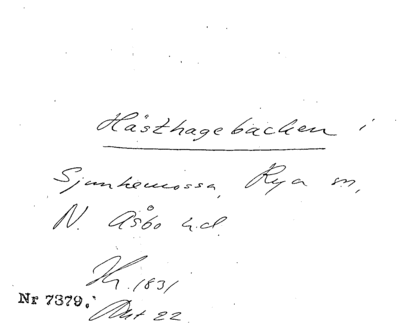 Hästhagebacken i
Sjunkemossa, Rya sn,
N. Åsbo hd.
Kr. 1831
Nr 7379.
Akt 22